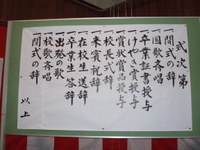 式次第
一開式の辞
一国歌斉唱
一卒業証書授与
一けやき賞授与
一賞状賞品授与
一校長式辞
一来賓祝辞
一在校生送辞
一卒業生答辞
一出発の歌
一校歌斉唱
一閉式の辞
以上